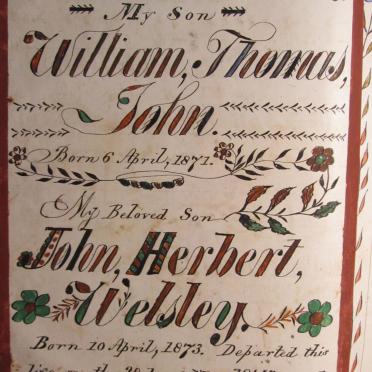 My Son
William, Thomas,
John.
Born 6 April, 1871.
My Beloved Son
John, Herbert,
Welsley.
Born 10 April, 1873. Departed this